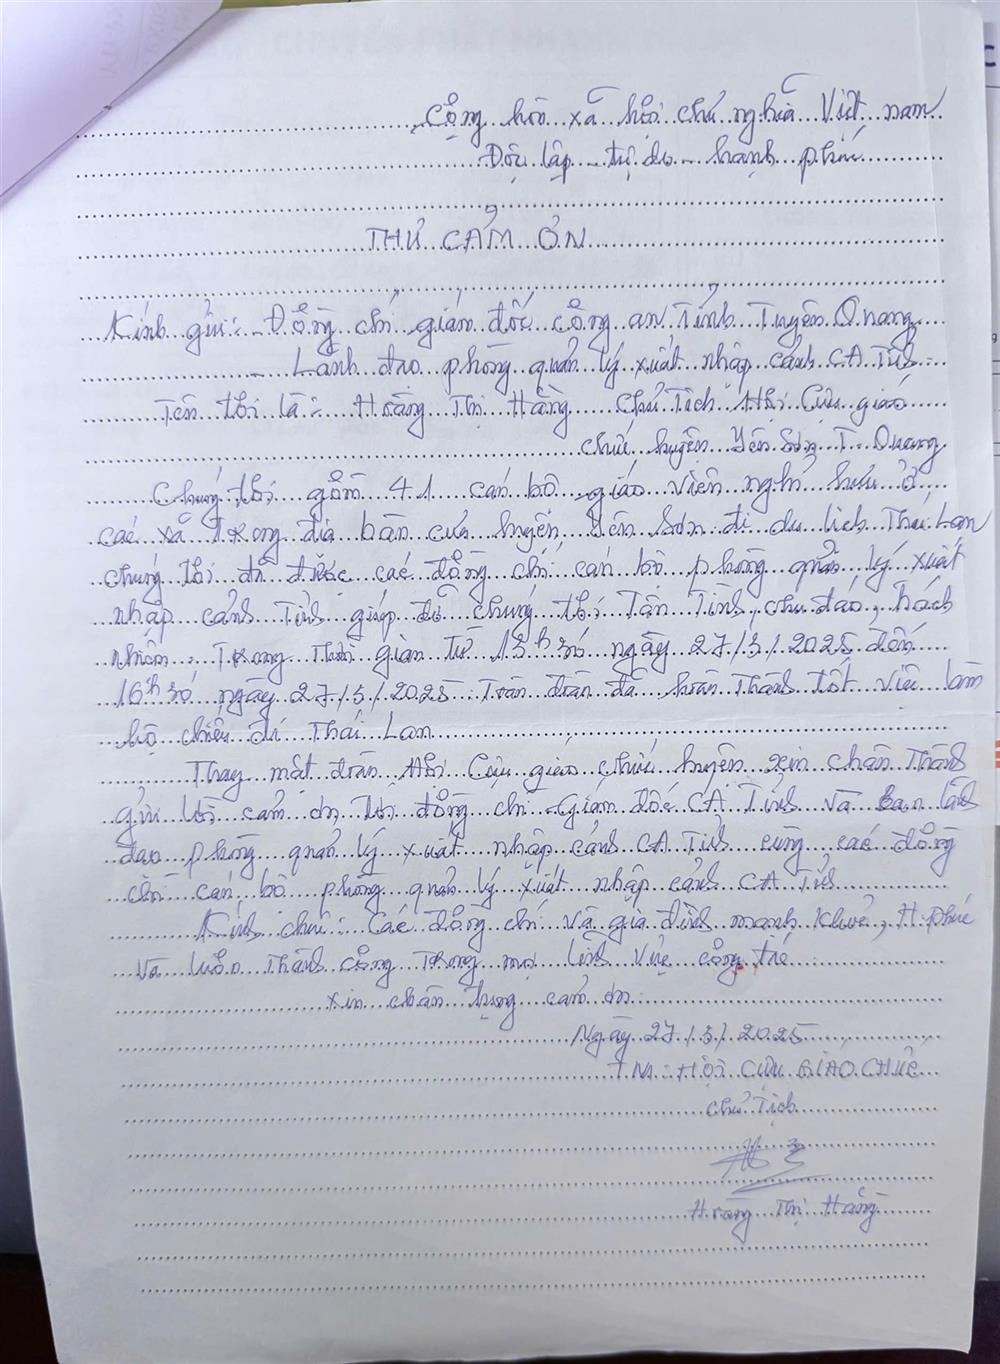 Cộng hòa xã hội chủ nghĩa Việt nam
Độc lập - tự do - hạnh phúc
THƯ CẢM ƠN
Kính gửi: - Đồng chí giám đốc công an Tỉnh Tuyên Quang
- Lãnh đạo phòng quản lý xuất nhập cảnh CA Tỉnh
Tên tôi là: Hoàng Thị Hằng Chủ Tịch Hội Cựu giáo
chức huyện Yên Sơn T. Quang
Chúng tôi gồm 41 cán bộ giáo viên nghỉ hưu ở
các xã Trong địa bàn của huyện Yên Sơn đi du lịch Thái Lan
chúng tôi đã được các đồng chí cán bộ phòng quản lý xuất
nhập cảnh Tỉnh giúp đỡ chúng tôi Tận Tình, chu đáo, Trách
nhiệm. Trong Thời gian Từ 13h30 ngày 27/3/2025 đến
16h30 ngày 27/3/2025 Toàn đoàn đã hoàn Thành tốt việc làm
hộ chiếu đi Thái Lan
Thay mặt đoàn Hội Cựu giáo chức huyện xin chân Thành
gửi lời cảm ơn Tới đồng chí Giám đốc CA Tỉnh và Ban lãnh
đạo phòng quản lý xuất nhập cảnh CA Tỉnh cùng các đồng
chí cán bộ phòng quản lý xuất nhập cảnh CA Tỉnh
Kính chúc: Các đồng chí và gia đình mạnh khoẻ, H. phúc
và luôn Thành công Trong mọi lĩnh vực công tác
Xin chân trọng cảm ơn
Ngày 27/3/2025
T.M: HỘI CỰU GIÁO CHỨC
Chủ Tịch
Hoàng Thị Hằng